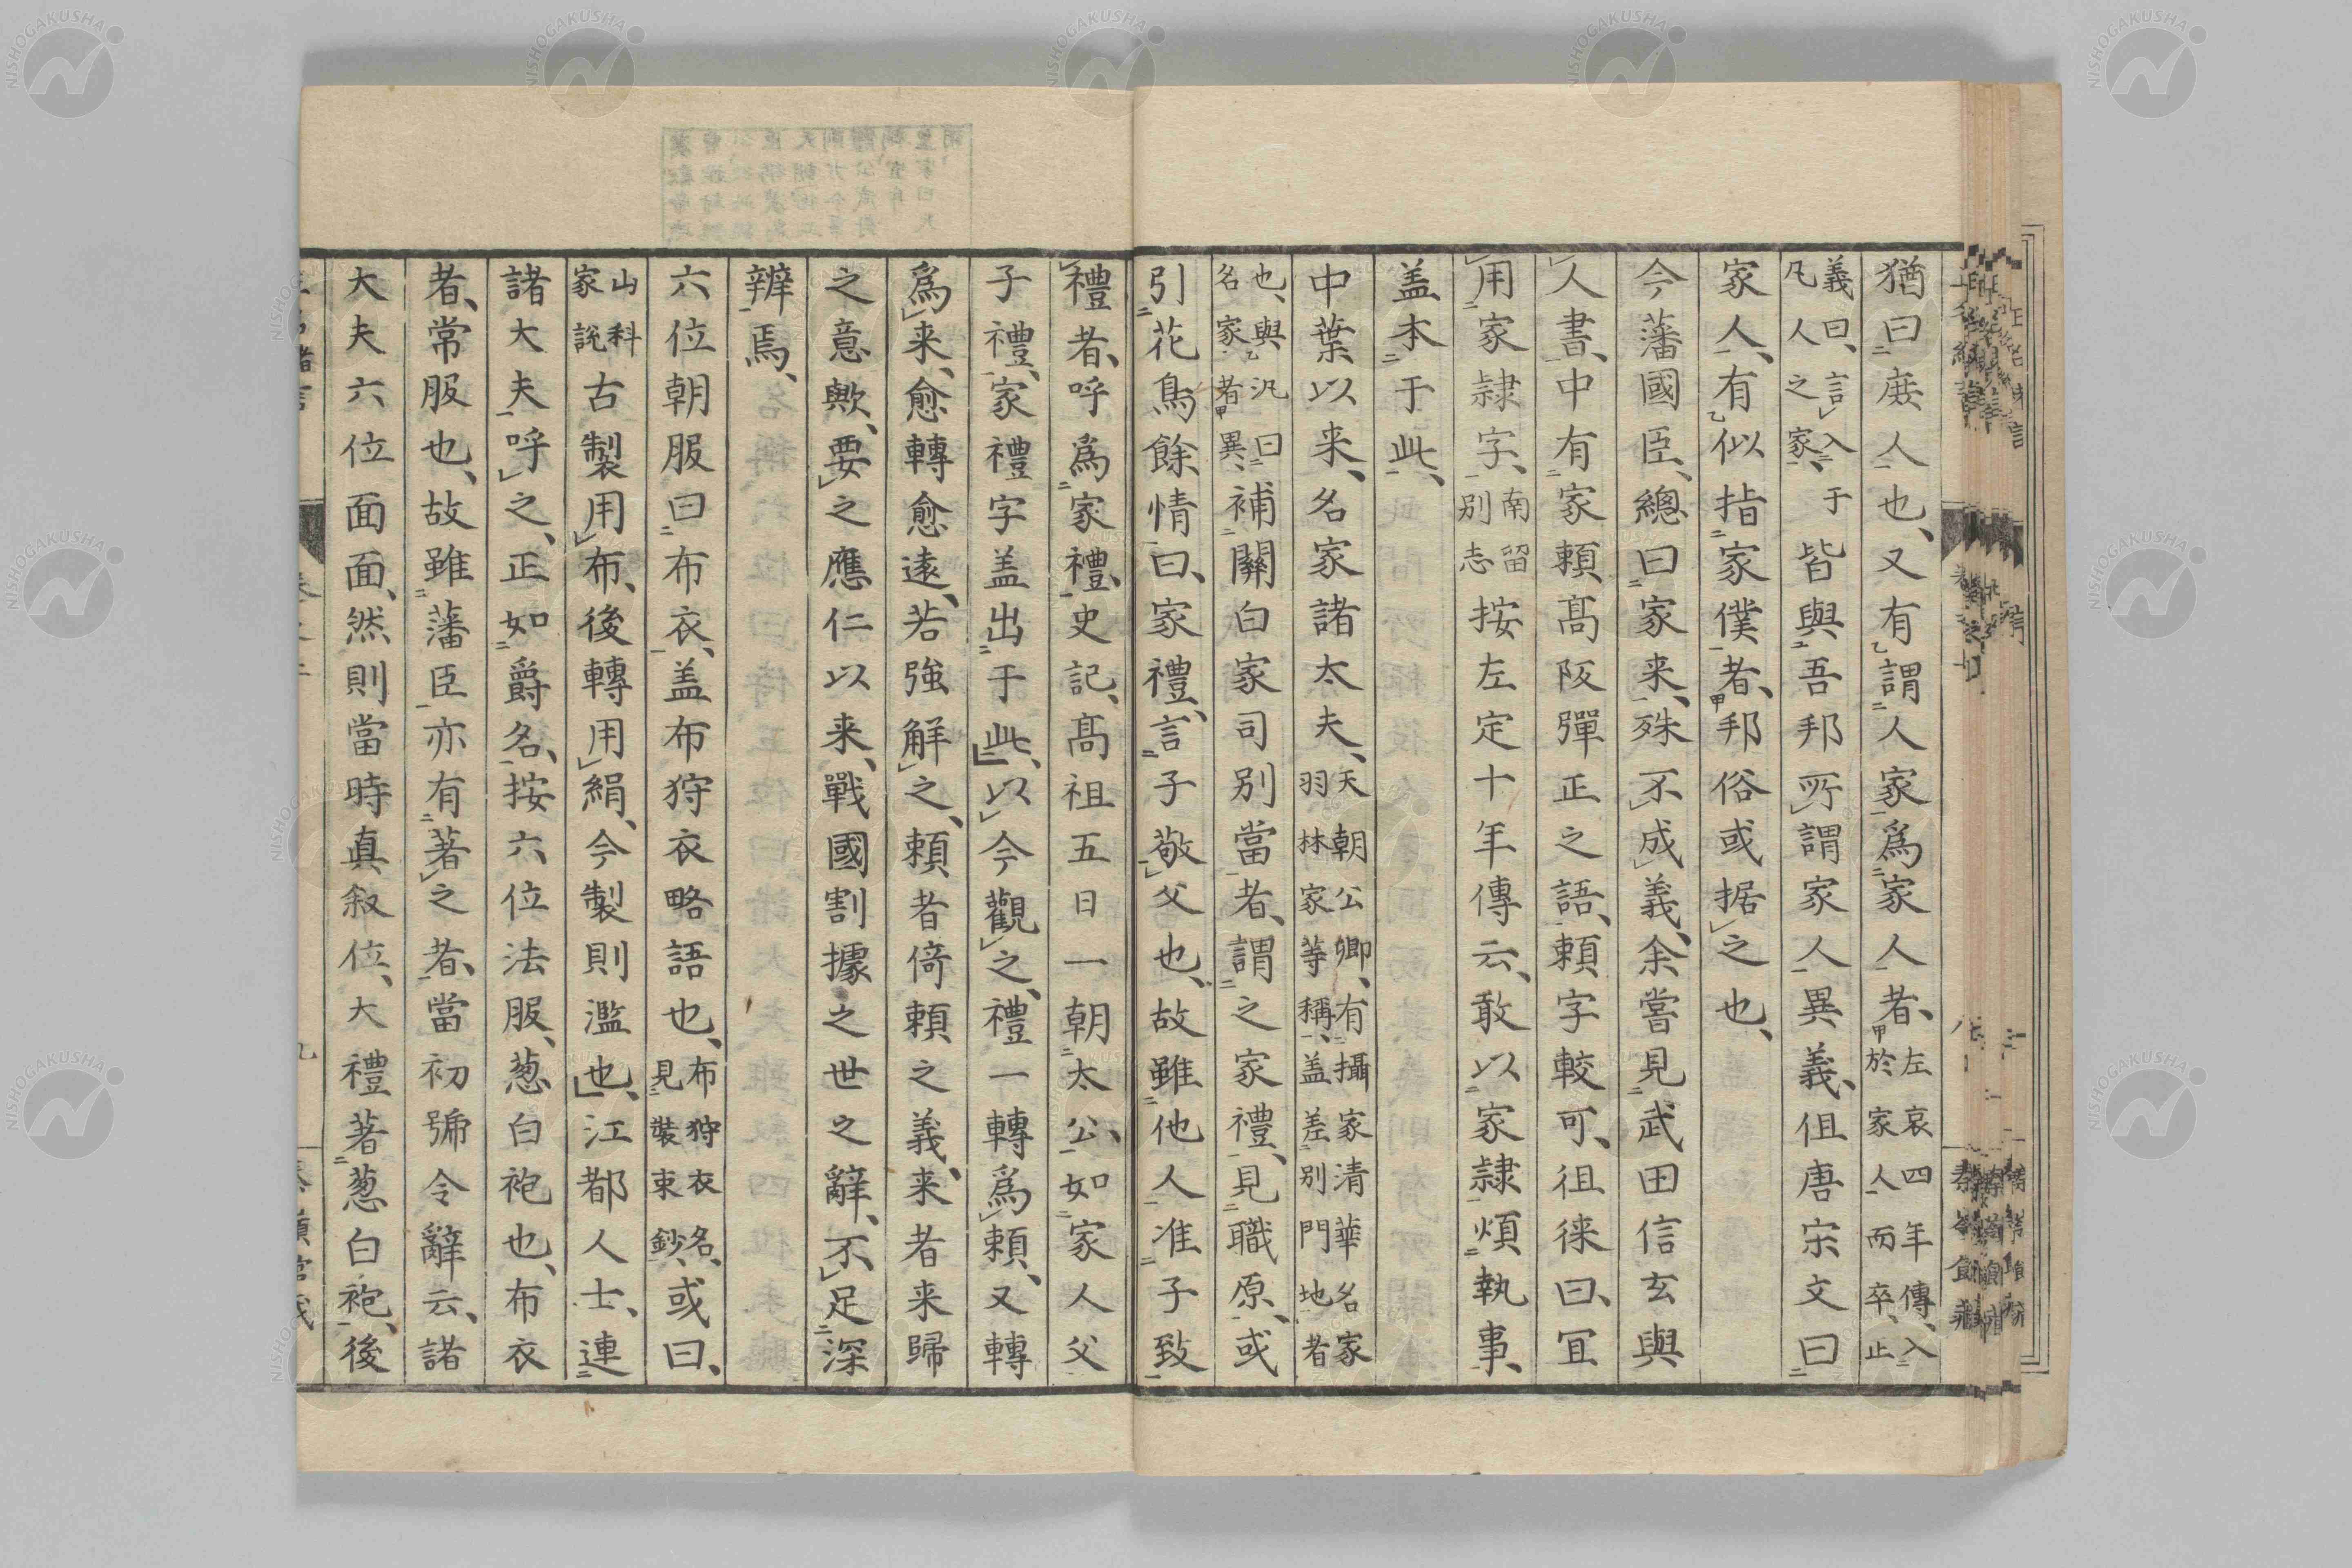 猶曰庶人也、又有謂人家爲家人者、左哀四年傳、入於家人而卒、止
義曰、言入于凡人之家、皆與吾邦所謂家人異義、但唐宋文曰
家人、有似指家僕者、邦俗或据之也、
今藩國臣、總曰家来、殊不成義、余嘗見武田信玄與
人書、中有家頼高阪彈正之語、頼字較可、徂徠曰、宜
用家隷字、南留別志按左定十年傳云、敢以家隷煩執事、
盖本于此、
中葉以来、名家諸太夫、天朝公卿、有攝家清華名家羽林家等稱、盖差別門地者
也、與汎曰名家者異、補關白家司別當者、謂之家禮、見職原、或
引花鳥餘情曰、家禮、言子敬父也、故雖他人准子致
禮者、呼爲家禮、史記、高祖五日一朝太公、如家人父
子禮、家禮字盖出于此、以今觀之、禮一轉爲頼、又轉
爲来、愈轉愈遠、若強解之、頼者倚頼之義、来者来歸
之意歟、要之應仁以来、戰國割據之世之辭、不足深
辨焉、
六位朝服曰布衣、盖布狩衣略語也、布狩衣名、見裝束鈔、或曰、
山科家説古製用布、後轉用絹、今製則濫也、江都人士、連
諸大夫呼之、正如爵名、按六位法服、葱白袍也、布衣
者、常服也、故雖藩臣亦有著之者、當初號令辭云、諸
大夫六位面面、然則當時真叙位、大禮著葱白袍、後